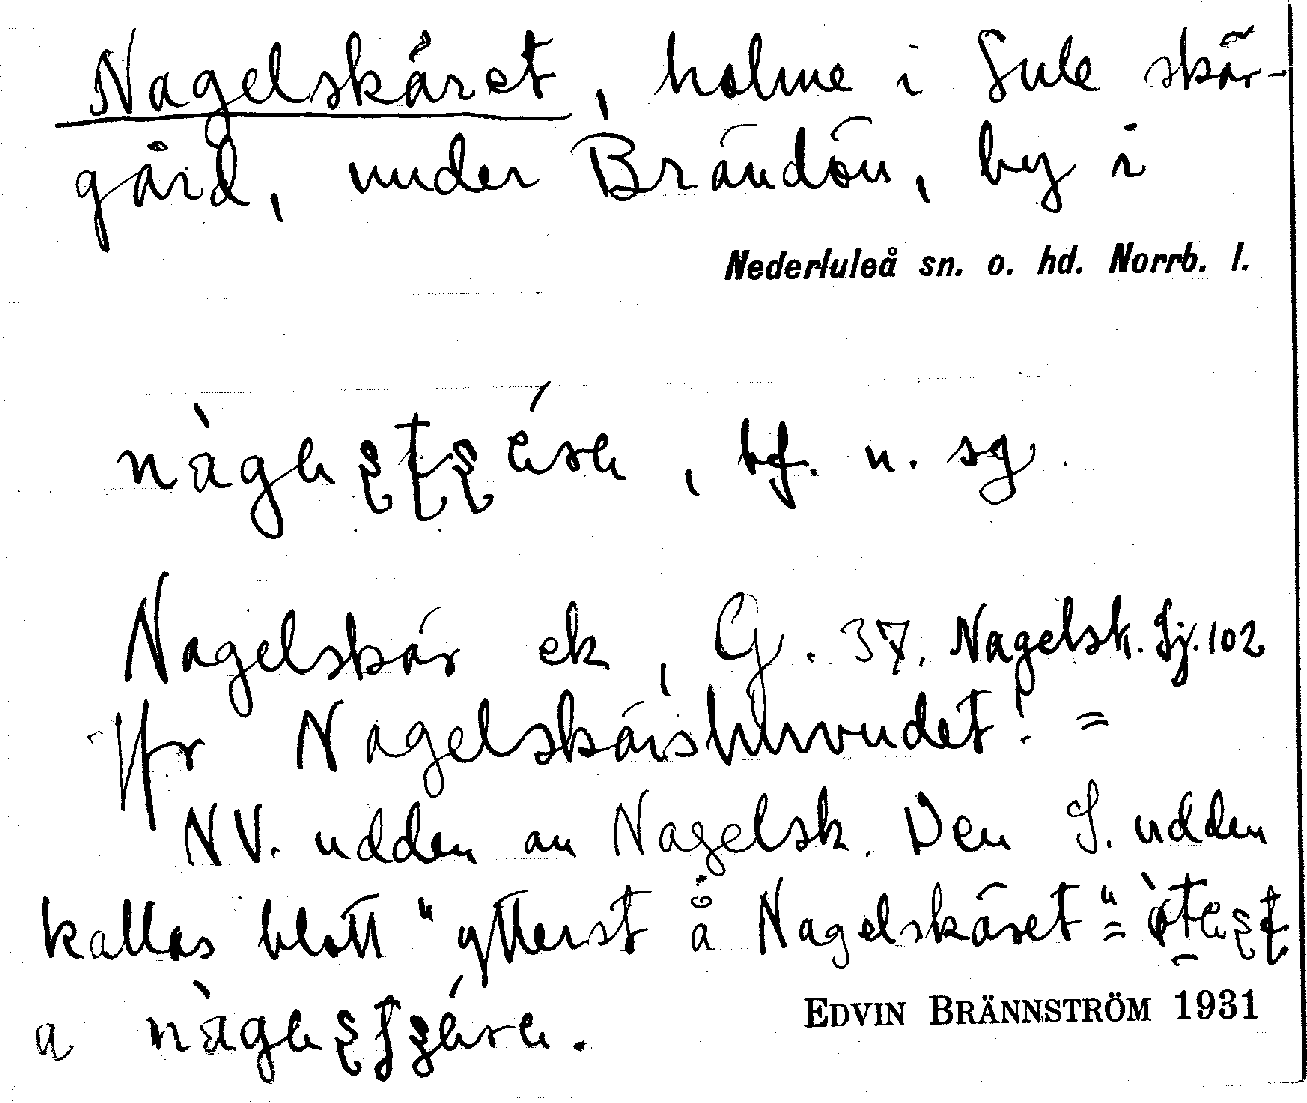 Nagelskäret, holme i Lule skär-
gård, under Brändön, by i
Nederluleå sn. o. hd. Norrb. l.
bf. n. sg.
Nagelskär ek, G. 37. Nagelsk. Sj. 102
Jfr Nagelskärshuvudet! =
NV. udden av Nagelsk. Den S. udden
kallas blott "ytterst å Nagelskäret" =
a
EDVIN BRÄNNSTRÖM 1931